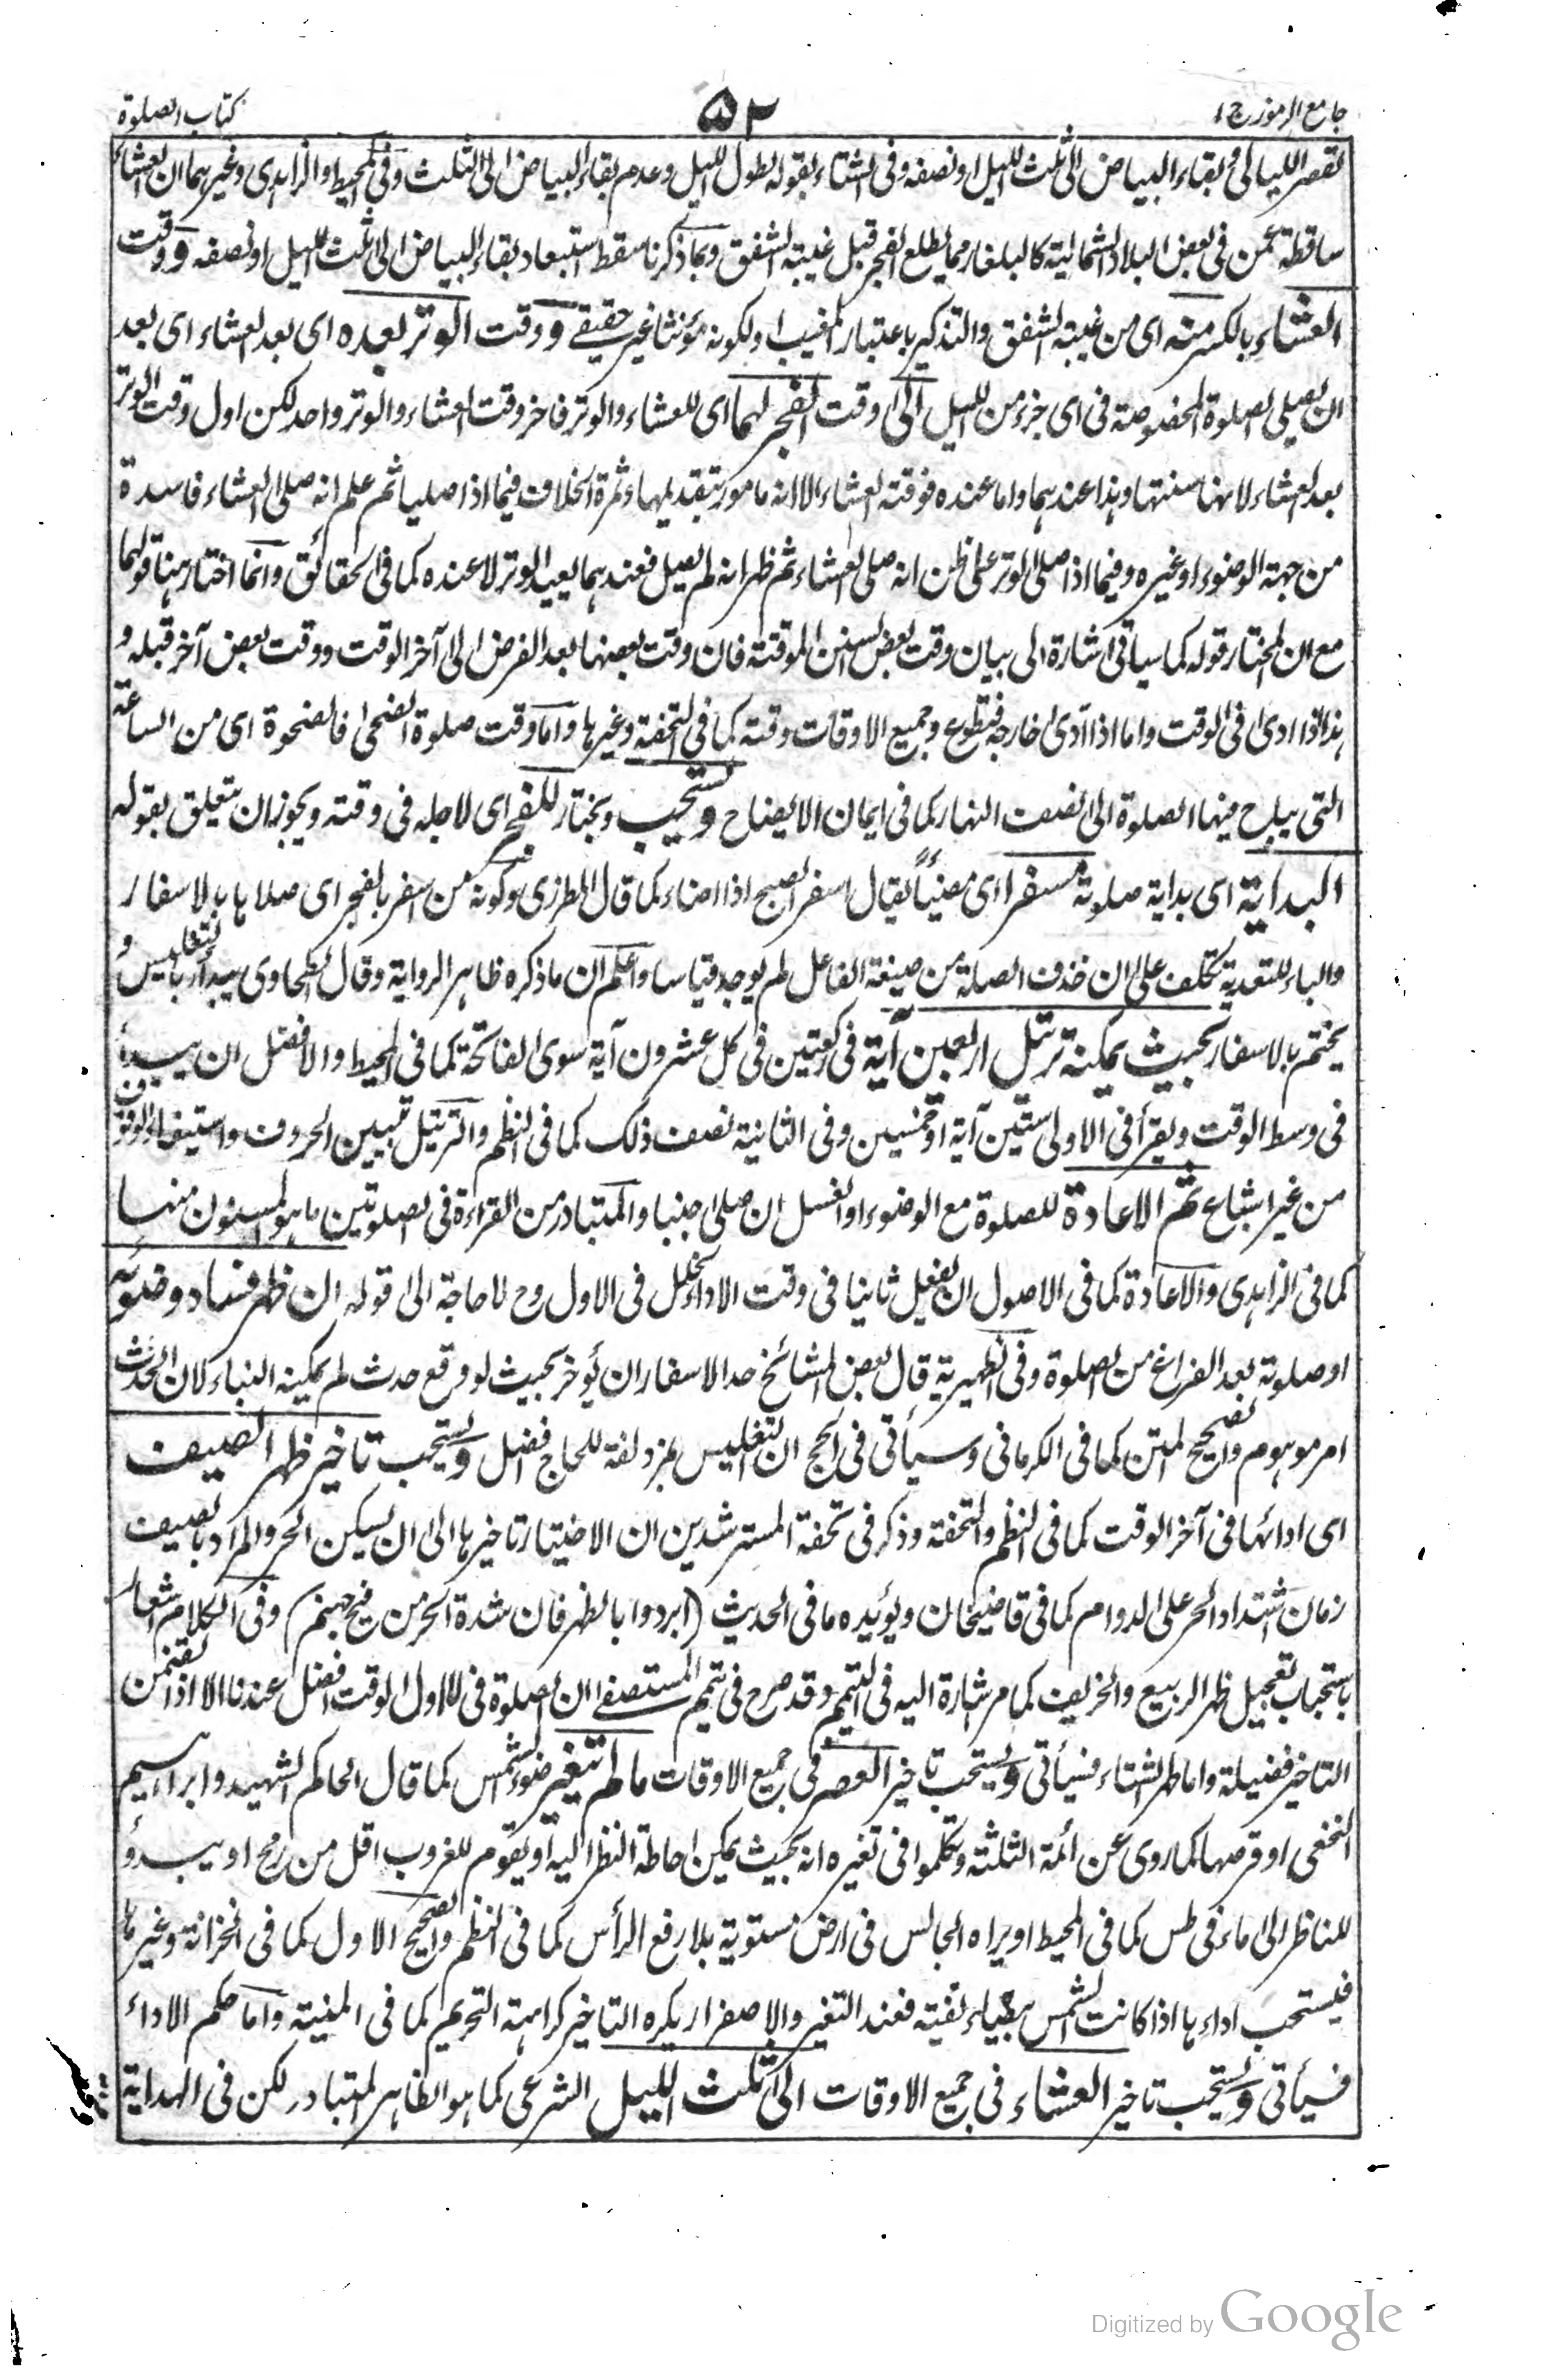 جامع الرموز ج ١
٥٢
كتاب الصلوة
لقصر الليالى وبقاء البياض الى ثلث الليل او نصفه وفى الشتاء بقوله لطول الليل وعدم بقاء البياض الى الثلث وفى المحيط والزاهدى وغيرهما ان العشاء
ساقطة عمن فى بعض البلاد الشمالية كالبلغار مما يطلع الفجر قبل غيبة الشفق وبما ذكرنا سقط استبعاد بقاء البياض الى ثلث الليل او نصفه ووقت
العشاء بالكسر منه اى من غيبة الشفق والتذكير باعتبار المغيب او لكونه مؤنثا غير حقيقے و وقت الوتر بعده اى بعد العشاء اى بعد
ان يصلى الصلوة المخصوصة فى اى جزء من الليل الى وقت الفجر لهما اى للعشاء والوتر فاخر وقت العشاء والوتر واحد لكن اول وقت الوتر
بعد العشاء لانها سنتها وهذا عندهما واما عنده فوقته العشاء الا انه مامور بتقديمها وثمرة الخلاف فيما اذا صليا ثم علم انه صلى العشاء فاسدة
من جهة الوضوء او غيره وفيما اذا صلى الوتر على ظن انه صلى العشاء ثم ظهر انه لم يصل فعندهما يعيد الوتر لا عنده كما فى الحقائق وانما اختار هنا قولهما
مع ان المختار قوله كما سياتى اشارة الى بيان وقت بعض السنن الموقتة فان وقت بعضها بعد الفرض الى آخر الوقت ووقت بعض آخر قبله و
هذا اذا ادى فى الوقت واما اذا ادى خارجه فتطوع وجميع الاوقات وقته كما فى التحفة وغيرها واما وقت صلوة الضحى فالضحوة اى من الساعة
التى يباح فيها الصلوة الى نصف النهار كما فى ايمان الايضاح ويستحب ويختار للفجر اى لاجله فى وقته ويجوز ان يتعلق بقوله
البداية اى بداية صلوته مسفرا اى مضيئا يقال اسفر الصبح اذا اضاء كما قال المطرزى وكونه من اسفر بالفجر اى صلاها بالاسفار
والباء للتعدية تكلف على ان حذف الصلة من صيغة الفاعل لم يوجد قياسا واعلم ان ما ذكره ظاهر الرواية وقال الطحاوى يبدأ بالتغليس و
يختم بالاسفار بحيث يمكنه ترتل اربعين آية فى ركعتين فى كل عشرون آية سوى الفاتحة كما فى المحيط والافضل ان يبدأ
فى وسط الوقت ويقرأ فى الاولى ستين آية او خمسين وفى الثانية نصف ذلك كما فى النظم والترتيل تبيين الحروف واستيفاء الوقوف
من غير اشباع ثم الاعادة للصلوة مع الوضوء او الغسل ان صلى جنبا والمتبادر من القراءة فى الصلوتين ما هو المسنون منها
كما فى الزاهدى والاعادة كما فى الاصول ان يفعل ثانيا فى وقت الاداء لخلل فى الاول وح لا حاجة الى قوله ان ظهر فساد وضوئه
او صلوته بعد الفراغ من الصلوة وفى الظهيرية قال بعض المشائخ حد الاسفار ان يؤخر بحيث لو وقع حدث لم يمكنه البناء لان الحدث
امر موهوم والصحيح المتن كما فى الكرمانى وسيأتى فى الحج ان التغليس بمزدلفة للحاج افضل ويستحب تاخير ظهر الصيف
اى ادائها فى آخر الوقت كما فى النظم والتحفة وذكر فى تحفة المسترشدين ان الاختيار تاخيرها الى ان يسكن الحر والمراد بالصيف
زمان اشتداد الحر على الدوام كما فى قاضيخان ويؤيده ما فى الحديث (ابردوا بالظهر فان شدة الحر من فيح جهنم) وفى الكلام اشعار
باستحباب تعجيل ظهر الربيع والخريف كما مر اشارة اليه فى التيمم وقد صرح فى تيمم المستصفے ان الصلوة فى الاول الوقت افضل عندنا الا اذا تضمن
التاخير فضيلة واما ظهر الشتاء فسيأتى ويستحب تاخير العصر فى جميع الاوقات مالم تتغير ضوء الشمس كما قال الحاكم الشهيد وابراهيم
النخعى او قرصها كما روى عن ائمة الثلثة وتكلموا فى تغيره انه بحيث يمكن احاطة النظر اليه او يقوم للغروب اقل من رمح او يبدؤ
للناظر الى ماء فى طس كما فى المحيط او يراه الجالس فى ارض مستوية بلا رفع الرأس كما فى النظم والصحيح الاول كما فى الخزانة وغيرها
فيستحب اداءها اذا كانت الشمس بيضاء نقية فعند التغير والاصفرار يكره التاخير كراهة التحريم كما فى المنية واما حكم الاداء
فسيأتى ويستحب تاخير العشاء فى جميع الاوقات الى ثلث الليل الشرعى كما هو الظاهر المتبادر لكن فى الهداية
Digitized by Google